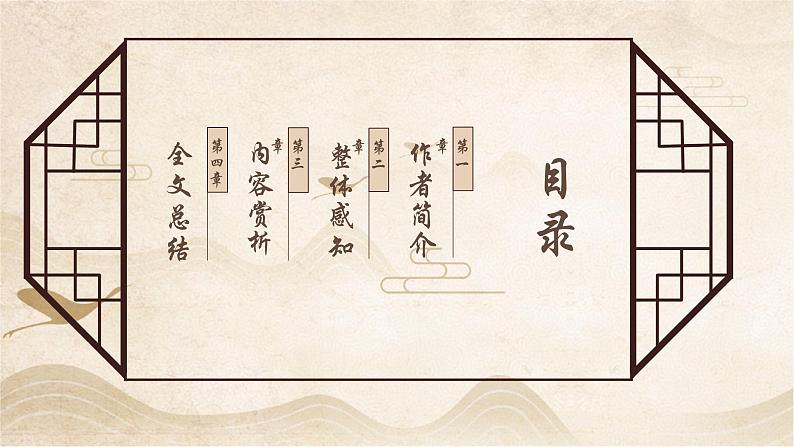 目录
第一章
作者简介
第二章
整体感知
第三章
内容赏析
第四章
全文总结